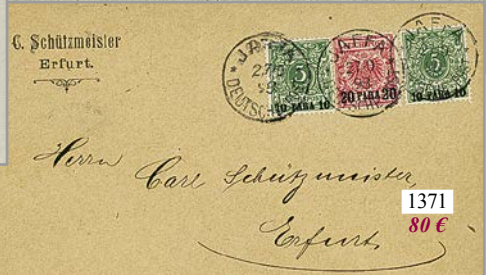 C. Schützmeister
Erfurt.
JAFFA
27/9
98
DEUTSCHE
5
10 PARA 10
JAFFA
20 PARA 20
JAFFA
5
10 PARA 10
Herrn Carl Schützmeister,
Erfurt,
1371
80 €